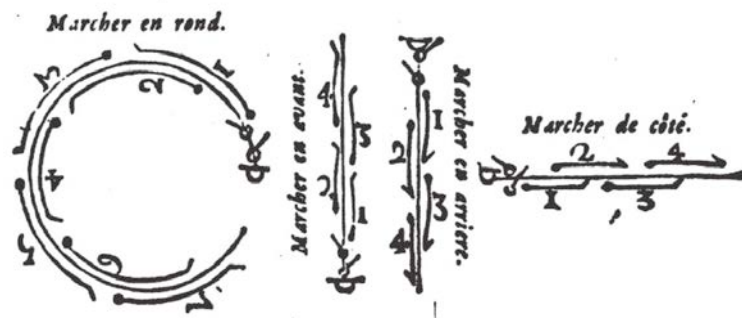 Marcher en rond.
1
2
3
4
5
6
7
Marcher en avant.
4
3
2
1
Marcher en arriere.
1
2
3
4
Marcher de côté.
2 4
1 3